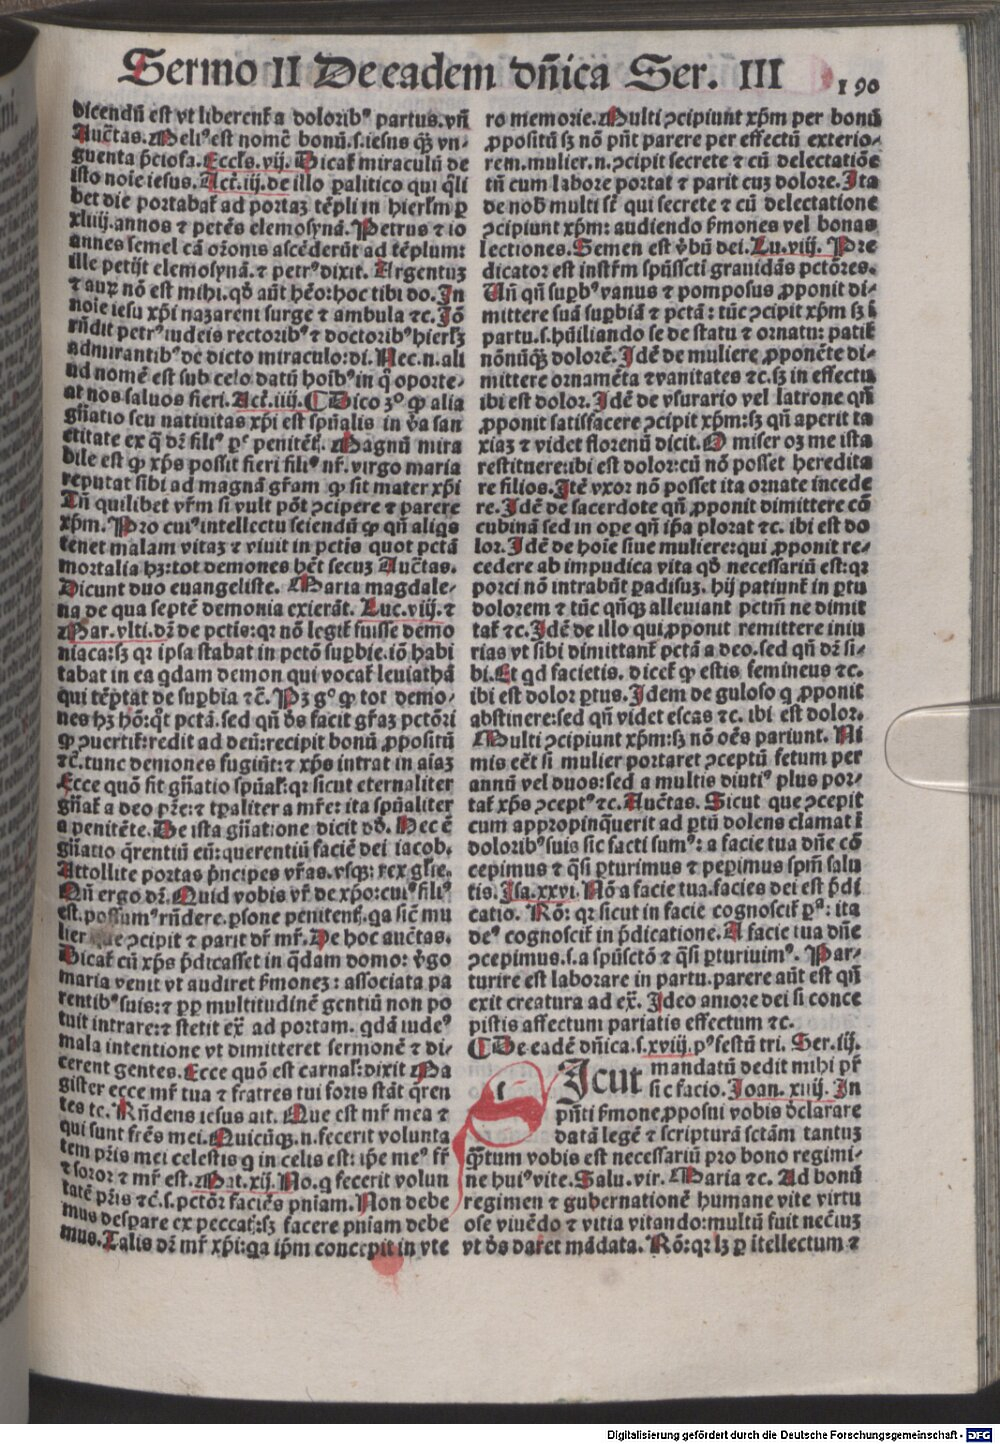 Sermo II De eadem dñica Ser. III
190
dicendũ est vt liberenť a doloribꝰ partus. vñ
Auctas. Meliꝰ est nomẽ bonũ. s. iesus qꝫ̃ vn-
guenta p̃ciosa. Eccls. vij. Dicať miraculũ de
isto noĩe iesus. Act̃. iij. de illo palitico qui q̃li
bet die portabať ad portaꝫ tẽpli in hierłm ꝑ
xluij. annos ⁊ petẽs elemosynã. Petrus ⁊ io
annes semel cã orõnis ascẽderũt ad tẽplum:
ille petijt elemosynã. ⁊ petrꝰ dixit. Argentuꝫ
⁊ auꝝ nõ est mihi. qđ aũt hẽo: hoc tibi do. In
noĩe iesu xp̃i nazareni surge ⁊ ambula ⁊c. Iõ
rñdit petrꝰ iudeis rectoribꝰ ⁊ doctoribꝰ hierłꝫ
admirantibꝰ de dicto miraculo: di. Nec. n. ali
ud nomẽ est sub celo datũ hoĩbꝰ in q̃ oporte-
at nos saluos fieri. Act̃. iiij. ¶ Dico 3ꝰ ꝙ alia
gñatio seu natiuitas xp̃i est spũalis in v̾a san
ctitate ex q̃ dr̃ filiꝰ pͨ penitẽt̾. Magnũ mira
bile est ꝙ xp̃s possit fieri filiꝰ nr̃. virgo maria
reputat sibi ad magnã gr̃am ꝙ sit mater xp̃i
Tñ quilibet vr̃m si vult põt ꝯcipere ⁊ parere
xp̃m. Pro cuiꝰ intellectu sciendũ ꝙ qñ aliqs
tenet malam vitaꝫ ⁊ viuit in pctis quot pctã
mortalia hꝫ: tot demones hẽt secuꝫ Auctas.
Dicunt duo euangeliste. Maria magdale-
na de qua septẽ demonia exierãt. Luc. viij. ⁊
Mar. vlti. dr̃ de pctis: qꝛ nõ legiť fuisse demo
niaca: sꝫ qꝛ ipsa stabat in pctõ suꝑbie. iõ habi
tabat in ea qdam demon qui vocať leuiathã
qui tẽptat de suꝑbia ⁊c̃. Pꝫ gͦ ꝙ tot demo-
nes hꝫ hõ: q̃t pctã. sed qñ dẽs facit gr̃aꝫ pctõri
ꝙ ꝯuertiť: redit ad deũ: recipit bonũ ꝓpositũ
⁊c̃. tunc demones fugiũt: ⁊ xp̃s intrat in aĩaꝫ
Ecce quõ fit gñatio spũaƚ: qꝛ sicut eternaliter
gñať a deo pr̃e: ⁊ tp̃aliter a mr̃e: ita spũaliter
a penitẽte. De ista gñatione dicit dđ. Hec ẽ
gñatio q̃rentiũ eũ: querentiũ faciẽ dei iacob.
Attollite portas p̃ncipes vr̃as. vsqꝫ: rex gƚie.
Qñ ergo dr̃. Quid vobis vr̃ de xp̃o: cuiꝰ filiꝰ
est. possumꝰ rñdere. ꝑsone penitent̾. qa sič mu
lier que ꝯcipit ⁊ parit dr̃ mr̃. De hoc auctas.
Dicať cũ xp̃s p̃dicasset in q̃dam domo: v̾go
maria venit vt audiret s̾monez: associata pa
rentibꝰ suis: ⁊ ꝓꝑ multitudinẽ gentiũ non po
tuit intrare: ⁊ stetit ex̃ ad portam. qdã iudeꝰ
mala intentione vt dimitteret sermonẽ ⁊ di-
cerent gentes. Ecce quõ est carnaƚ: dixit Ma
gister ecce mr̃ tua ⁊ fratres tui foris stãt q̃ren
tes te. Rñdens iesus ait. Que est mr̃ mea ⁊
qui sunt fr̃es mei. Quicũqꝫ. n. fecerit volunta
tem pr̃is mei celestis q̃ in celis est: ip̃e meꝰ fr̃
⁊ soror ⁊ mr̃ est. Mat. xij. No. q fecerit volun
tatẽ pr̃is ⁊c̃. s. pctõr faciẽs pniam. Non debe
mus desꝑare ex peccat̾: sꝫ facere pniam debe
mus. Talis dr̃ mr̃ xp̃i: qa ip̃m concepit in vte
ro memorie. Multi ꝯcipiunt xp̃m per bonũ
ꝓpositũ sꝫ nõ pñt parere per effectũ exterio-
rem. mulier. n. ꝯcipit secrete ⁊ cũ delectatiõe
tñ cum labore portat ⁊ parit cuꝫ dolore. Ita
de nob̾ multi st̃ qui secrete ⁊ cũ delectatione
ꝯcipiunt xp̃m: audiendo s̾mones vel bonas
lectiones. Semen est v̾bũ dei. Lu. viij. Pre
dicator est instr̃m spũssc̃ti grauidãs pctõres.
Uñ qñ suꝑbꝰ vanus ⁊ pomposus ꝓponit di-
mittere suã suꝑbiã ⁊ pctã: tũc ꝯcipit xp̃m sꝫ ĩ
partu. s. hũiliando se de statu ⁊ ornatu: patiť
nõnũqꝫ dolorẽ. Idẽ de muliere ꝓponẽte di-
mittere ornamẽta ⁊ vanitates ⁊c. sꝫ in effectu
ibi est dolor. Idẽ de vsurario vel latrone qñ
ꝓponit satisfacere ꝯcipit xp̃m: sꝫ qñ aperit ta
xiaꝫ ⁊ videt florenũ dicit. O miser oꝫ me ista
restituere: ibi est dolor: cũ nõ posset heredita
re filios. Itẽ vxor nõ posset ita ornate incede
re. Idẽ de sacerdote qñ ꝓponit dimittere cõ
cubinã sed in oꝑe qñ ip̃a plorat ⁊c. ibi est do
lor. Idẽ de hoĩe siue muliere: qui ꝓponit re-
cedere ab impudica vita qđ necessariũ est: qꝛ
porci nõ intrabũt ꝑadisuꝫ. hij patiunť in ꝑtu
dolorem ⁊ tũc qñqꝫ alleuiant pctm̃ ne dimit
tať ⁊c. Idẽ de illo qui ꝓponit remittere iniu
rias vt sibi dimittanť pctã a deo. sed qñ dr̃ si-
bi. Et qd facietis. diceť ꝙ estis femineus ⁊c.
ibi est dolor ꝑtus. Idem de guloso q ꝓponit
abstinere: sed qñ videt escas ⁊c. ibi est dolor.
Multi ꝯcipiunt xp̃m: sꝫ nõ oẽs pariunt. Ni
mis eẽt si mulier portaret ꝯceptũ fetum per
annũ vel duos: sed a multis diutiꝰ plus por-
tať xp̃s ꝯceptꝰ ⁊c. Auctas. Sicut que ꝯcepit
cum appropinq̃uerit ad ꝑtũ dolens clamat ĩ
doloribꝰ suis sic facti sumꝰ: a facie tua dñe cõ
cepimus ⁊ q̃si ꝑturimus ⁊ peꝑimus spm̃ salu
tis. Isa. xxvi. Nõ a facie tua. facies dei est p̃di
catio. Rõ: qꝛ sicut in facie cognosciť pͣ: ita
deꝰ cognosciť in p̃dicatione. A facie tua dñe
ꝯcepimus. s. a spũsctõ ⁊ q̃si ꝑturiuimꝰ. Par-
turire est laborare in partu. parere aũt est qñ
exit creatura ad ex̃. Ideo amore dei si conce
pistis affectum pariatis effectum ⁊c.
¶ De eadẽ dñica. s. xviij. pꝰ festũ tri. Ser. iij.
SIcut mandatũ dedit mihi pr̃
sic facio. Joan. xiiij. In
pñti s̾mone, ꝓposui vobis d̾clarare
datã legẽ ⁊ scripturã sctãm tantuꝫ
q̃tum vobis est necessariũ pro bono regimi-
ne huiꝰ vite. Salu. vir. Maria ⁊c. Ad bonũ
regimen ⁊ gubernationẽ humane vite virtu
ose viuẽdo ⁊ vitia vitando: multũ fuit nec̃iuꝫ
vt dẽs daret mãdata. Rõ: qꝛ lꝫ ꝑ itellectum ⁊
Digitalisierung gefördert durch die Deutsche Forschungsgemeinschaft - DFG